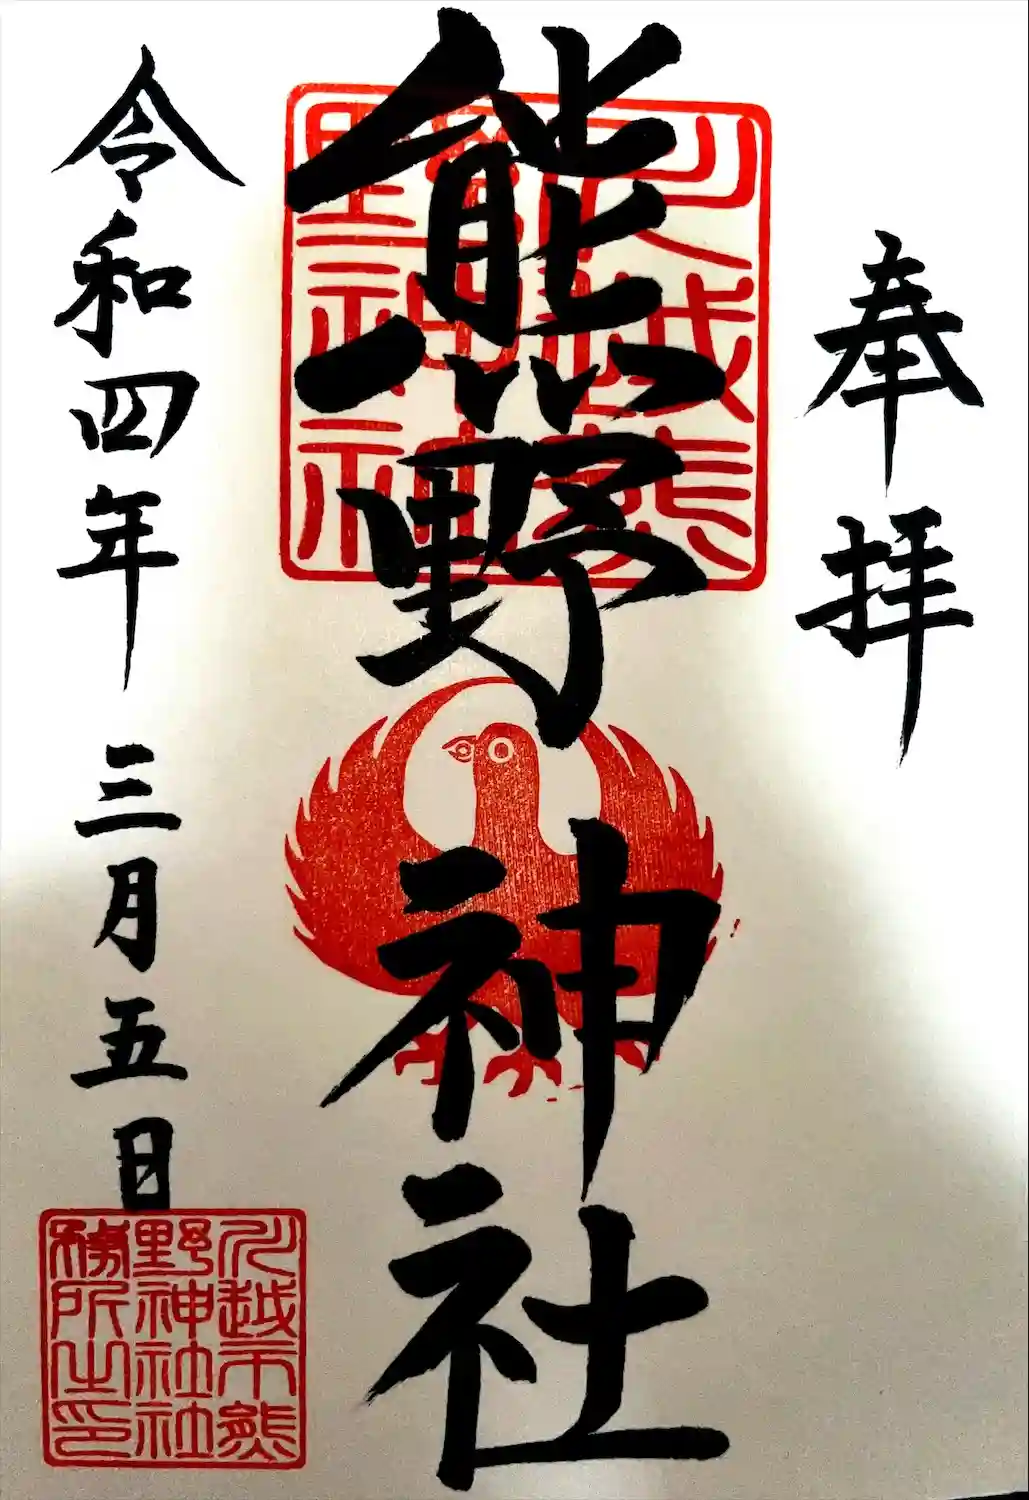 奉拝
熊野神社
令和四年 三月五日
川越熊
野神社
川越市熊
野神社社
務所之印